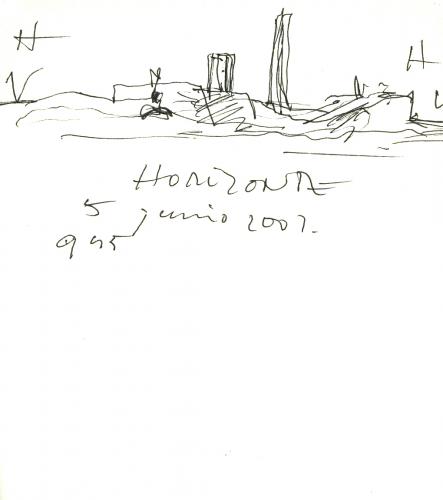 H H
HORIZONTE
5 junio 2007.
9 45